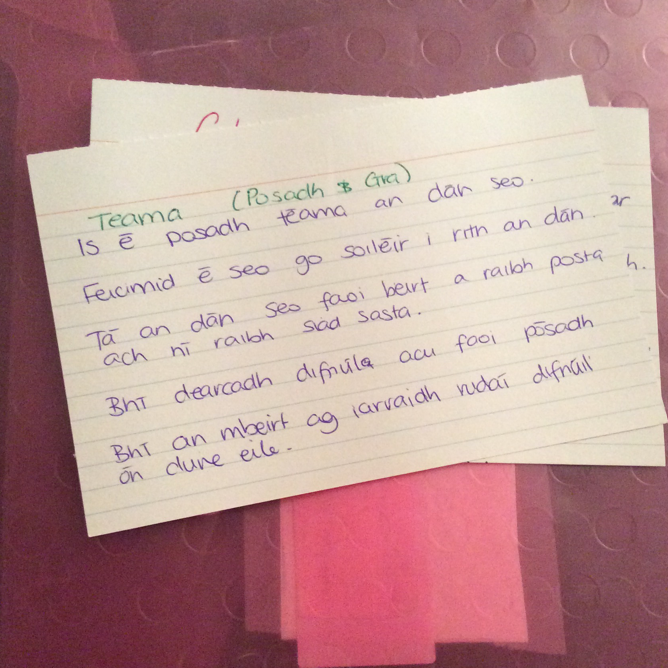 Teama (Posadh & Gra)
Is ē posadh tēama an dān seo.
Feicimid ē seo go soilēir i rith an dān.
Tā an dān seo faoi beirt a raibh posta
ach nī raibh siad sasta.
Bhī dearcadh difrūla acu faoi pōsadh
Bhī an mbeirt ag iarraidh rudaī difrūil
ōn dune eile.
ar
h.